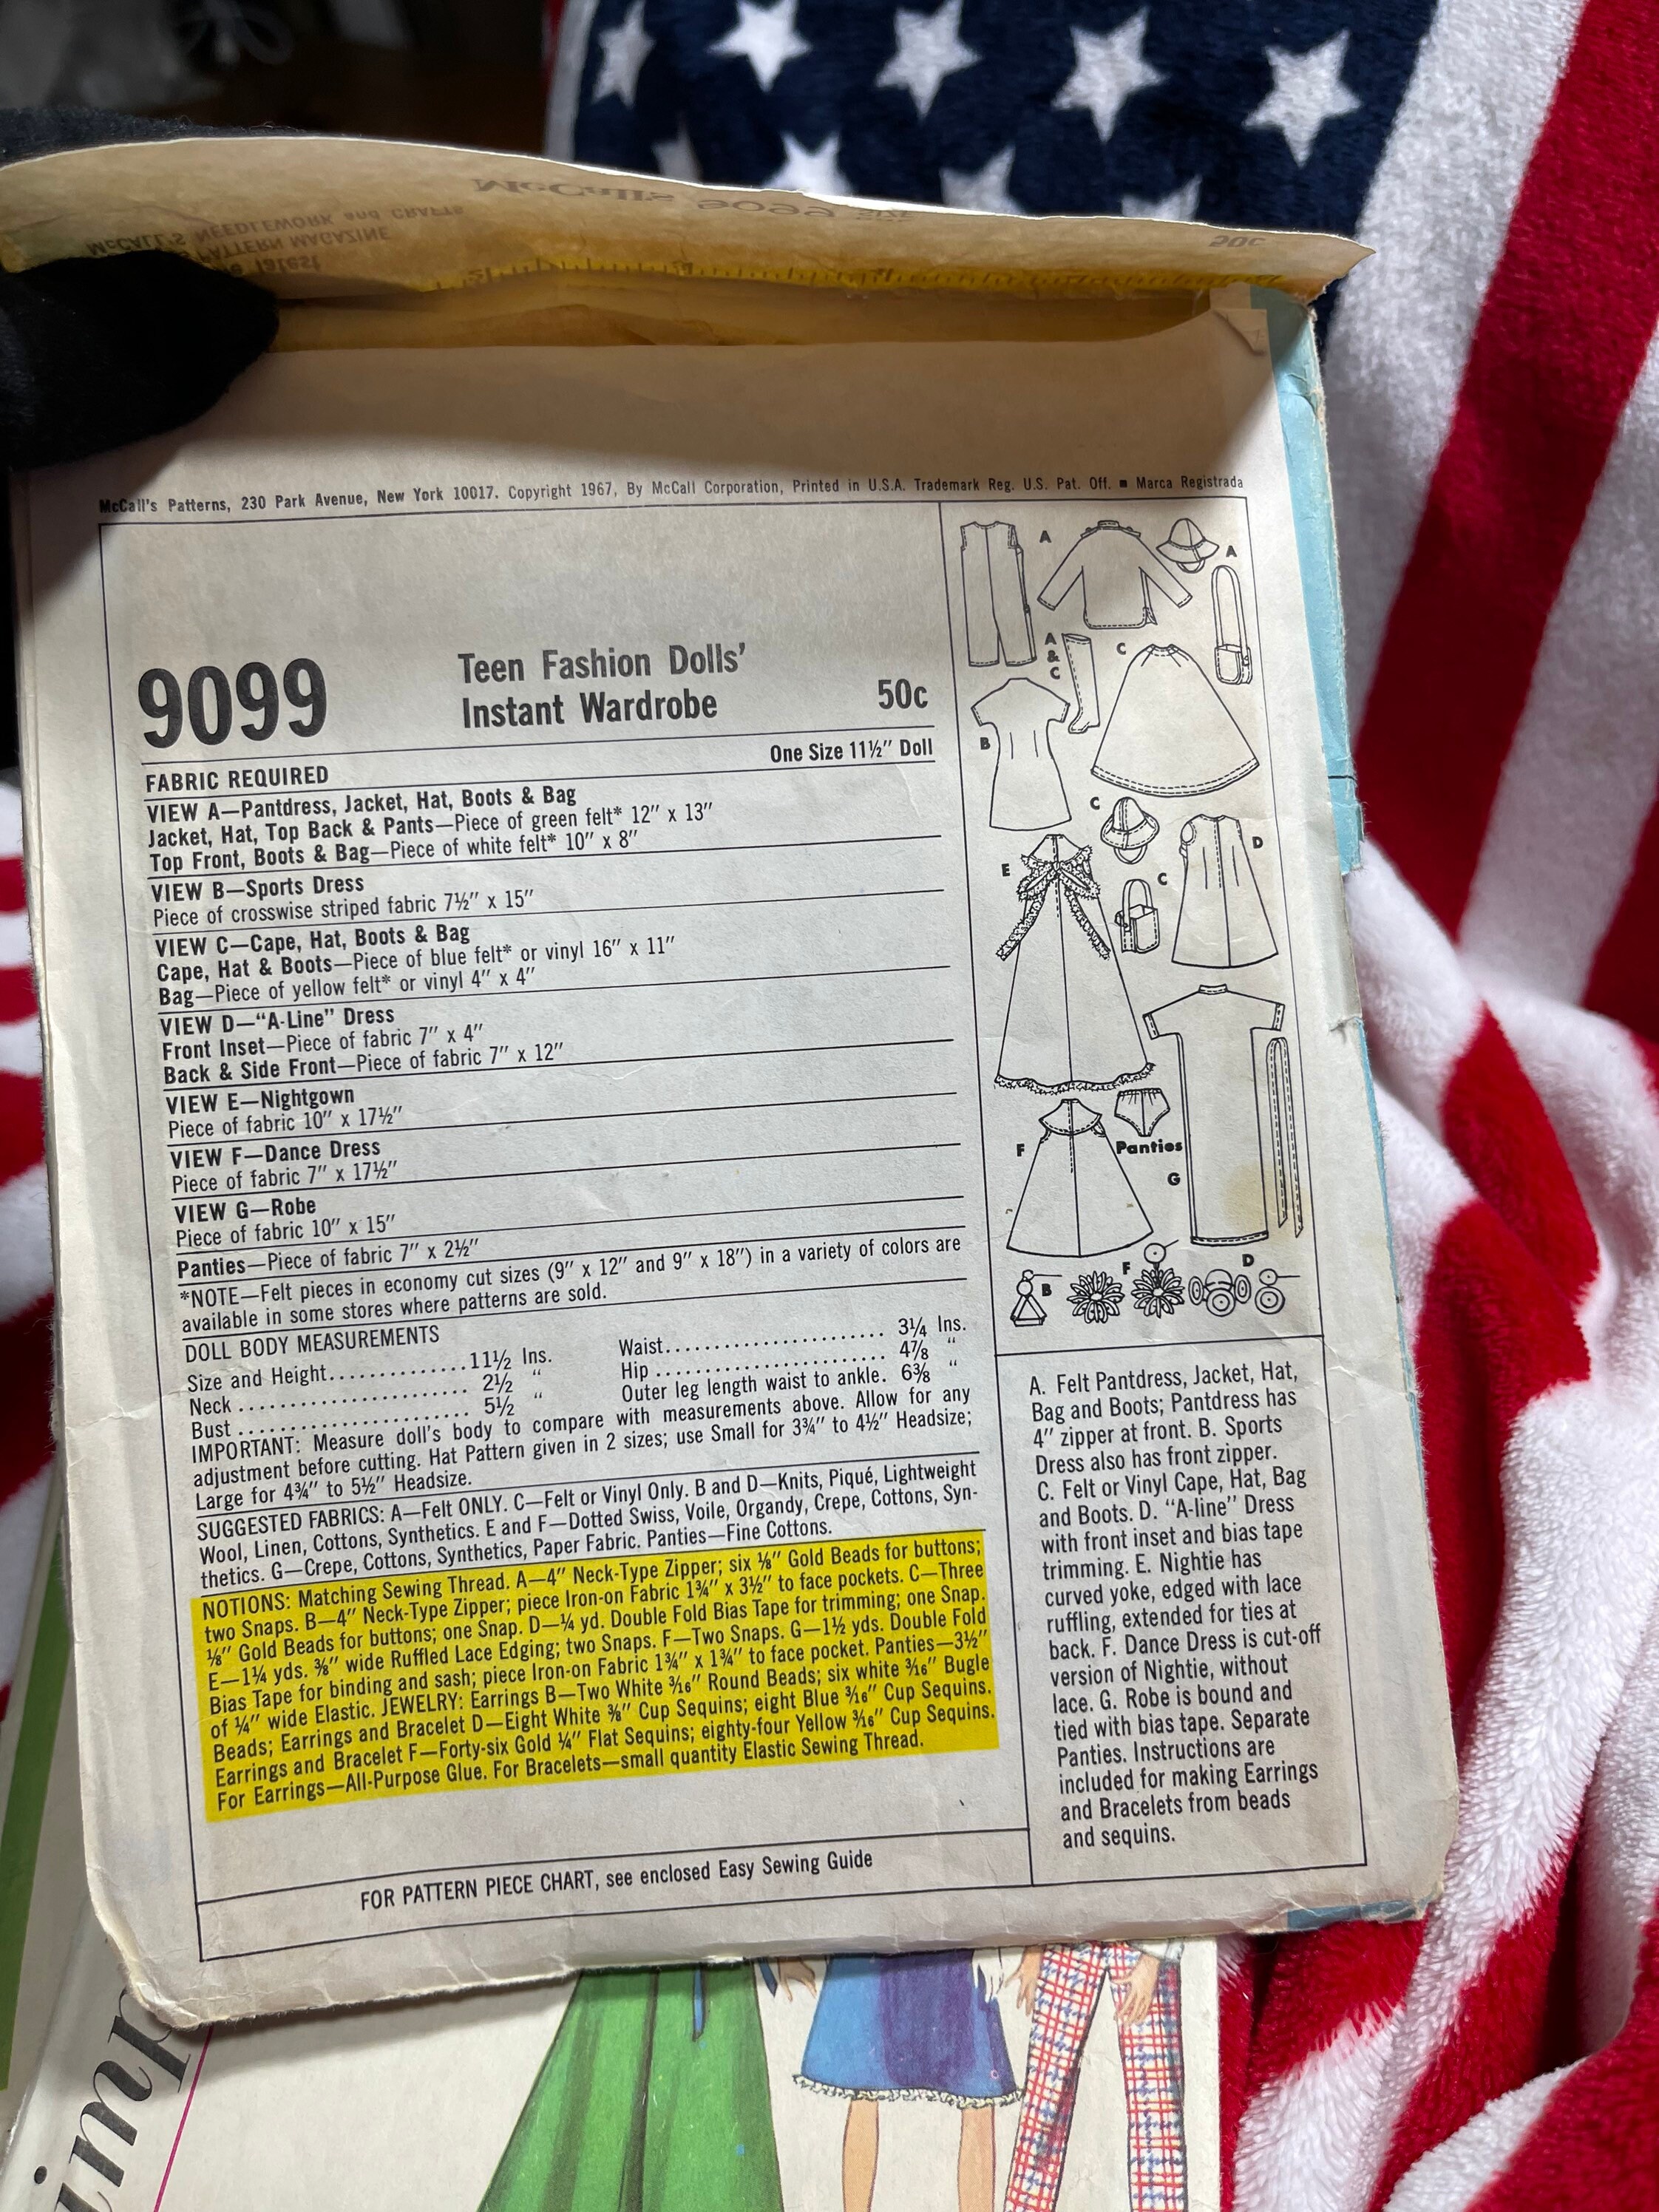 McCall's 9099 SIZE
50c
McCALL'S NEEDLEWORK and CRAFTS
PATTERN MAGAZINE
latest
McCall's Patterns, 230 Park Avenue, New York 10017. Copyright 1967, By McCall Corporation, Printed in U.S.A. Trademark Reg. U.S. Pat. Off. ■ Marca Registrada
9099
Teen Fashion Dolls'
Instant Wardrobe
50c
One Size 11½" Doll
FABRIC REQUIRED
VIEW A—Pantdress, Jacket, Hat, Boots & Bag
Jacket, Hat, Top Back & Pants—Piece of green felt* 12" x 13"
Top Front, Boots & Bag—Piece of white felt* 10" x 8"
VIEW B—Sports Dress
Piece of crosswise striped fabric 7½" x 15"
VIEW C—Cape, Hat, Boots & Bag
Cape, Hat & Boots—Piece of blue felt* or vinyl 16" x 11"
Bag—Piece of yellow felt* or vinyl 4" x 4"
VIEW D—"A-Line" Dress
Front Inset—Piece of fabric 7" x 4"
Back & Side Front—Piece of fabric 7" x 12"
VIEW E—Nightgown
Piece of fabric 10" x 17½"
VIEW F—Dance Dress
Piece of fabric 7" x 17½"
VIEW G—Robe
Piece of fabric 10" x 15"
Panties—Piece of fabric 7" x 2½"
*NOTE—Felt pieces in economy cut sizes (9" x 12" and 9" x 18") in a variety of colors are
available in some stores where patterns are sold.
DOLL BODY MEASUREMENTS
Size and Height............11½ Ins.
Neck .................... 2½ "
Bust .................... 5½ "
Waist.................... 3¼ Ins.
Hip .................... 4⅞ "
Outer leg length waist to ankle. 6⅜ "
IMPORTANT: Measure doll's body to compare with measurements above. Allow for any
adjustment before cutting. Hat Pattern given in 2 sizes; use Small for 3¾" to 4½" Headsize;
Large for 4¾" to 5½" Headsize.
SUGGESTED FABRICS: A—Felt ONLY. C—Felt or Vinyl Only. B and D—Knits, Piqué, Lightweight
Wool, Linen, Cottons, Synthetics. E and F—Dotted Swiss, Voile, Organdy, Crepe, Cottons, Syn-
thetics. G—Crepe, Cottons, Synthetics, Paper Fabric. Panties—Fine Cottons.
NOTIONS: Matching Sewing Thread. A—4" Neck-Type Zipper; six ⅛" Gold Beads for buttons;
two Snaps. B—4" Neck-Type Zipper; piece Iron-on Fabric 1¾" x 3½" to face pockets. C—Three
⅛" Gold Beads for buttons; one Snap. D—¼ yd. Double Fold Bias Tape for trimming; one Snap.
E—1¼ yds. ⅜" wide Ruffled Lace Edging; two Snaps. F—Two Snaps. G—1½ yds. Double Fold
Bias Tape for binding and sash; piece Iron-on Fabric 1¾" x 1¾" to face pocket. Panties—3½"
of ¼" wide Elastic. JEWELRY: Earrings B—Two White 3⁄16" Round Beads; six white 3⁄16" Bugle
Beads; Earrings and Bracelet D—Eight White ⅜" Cup Sequins; eight Blue 3⁄16" Cup Sequins.
Earrings and Bracelet F—Forty-six Gold ¼" Flat Sequins; eighty-four Yellow 3⁄16" Cup Sequins.
For Earrings—All-Purpose Glue. For Bracelets—small quantity Elastic Sewing Thread.
FOR PATTERN PIECE CHART, see enclosed Easy Sewing Guide
A
A
A & C
C
B
C
D
E
C
F
Panties
G
B
F
D
A. Felt Pantdress, Jacket, Hat,
Bag and Boots; Pantdress has
4" zipper at front. B. Sports
Dress also has front zipper.
C. Felt or Vinyl Cape, Hat, Bag
and Boots. D. "A-line" Dress
with front inset and bias tape
trimming. E. Nightie has
curved yoke, edged with lace
ruffling, extended for ties at
back. F. Dance Dress is cut-off
version of Nightie, without
lace. G. Robe is bound and
tied with bias tape. Separate
Panties. Instructions are
included for making Earrings
and Bracelets from beads
and sequins.
imp